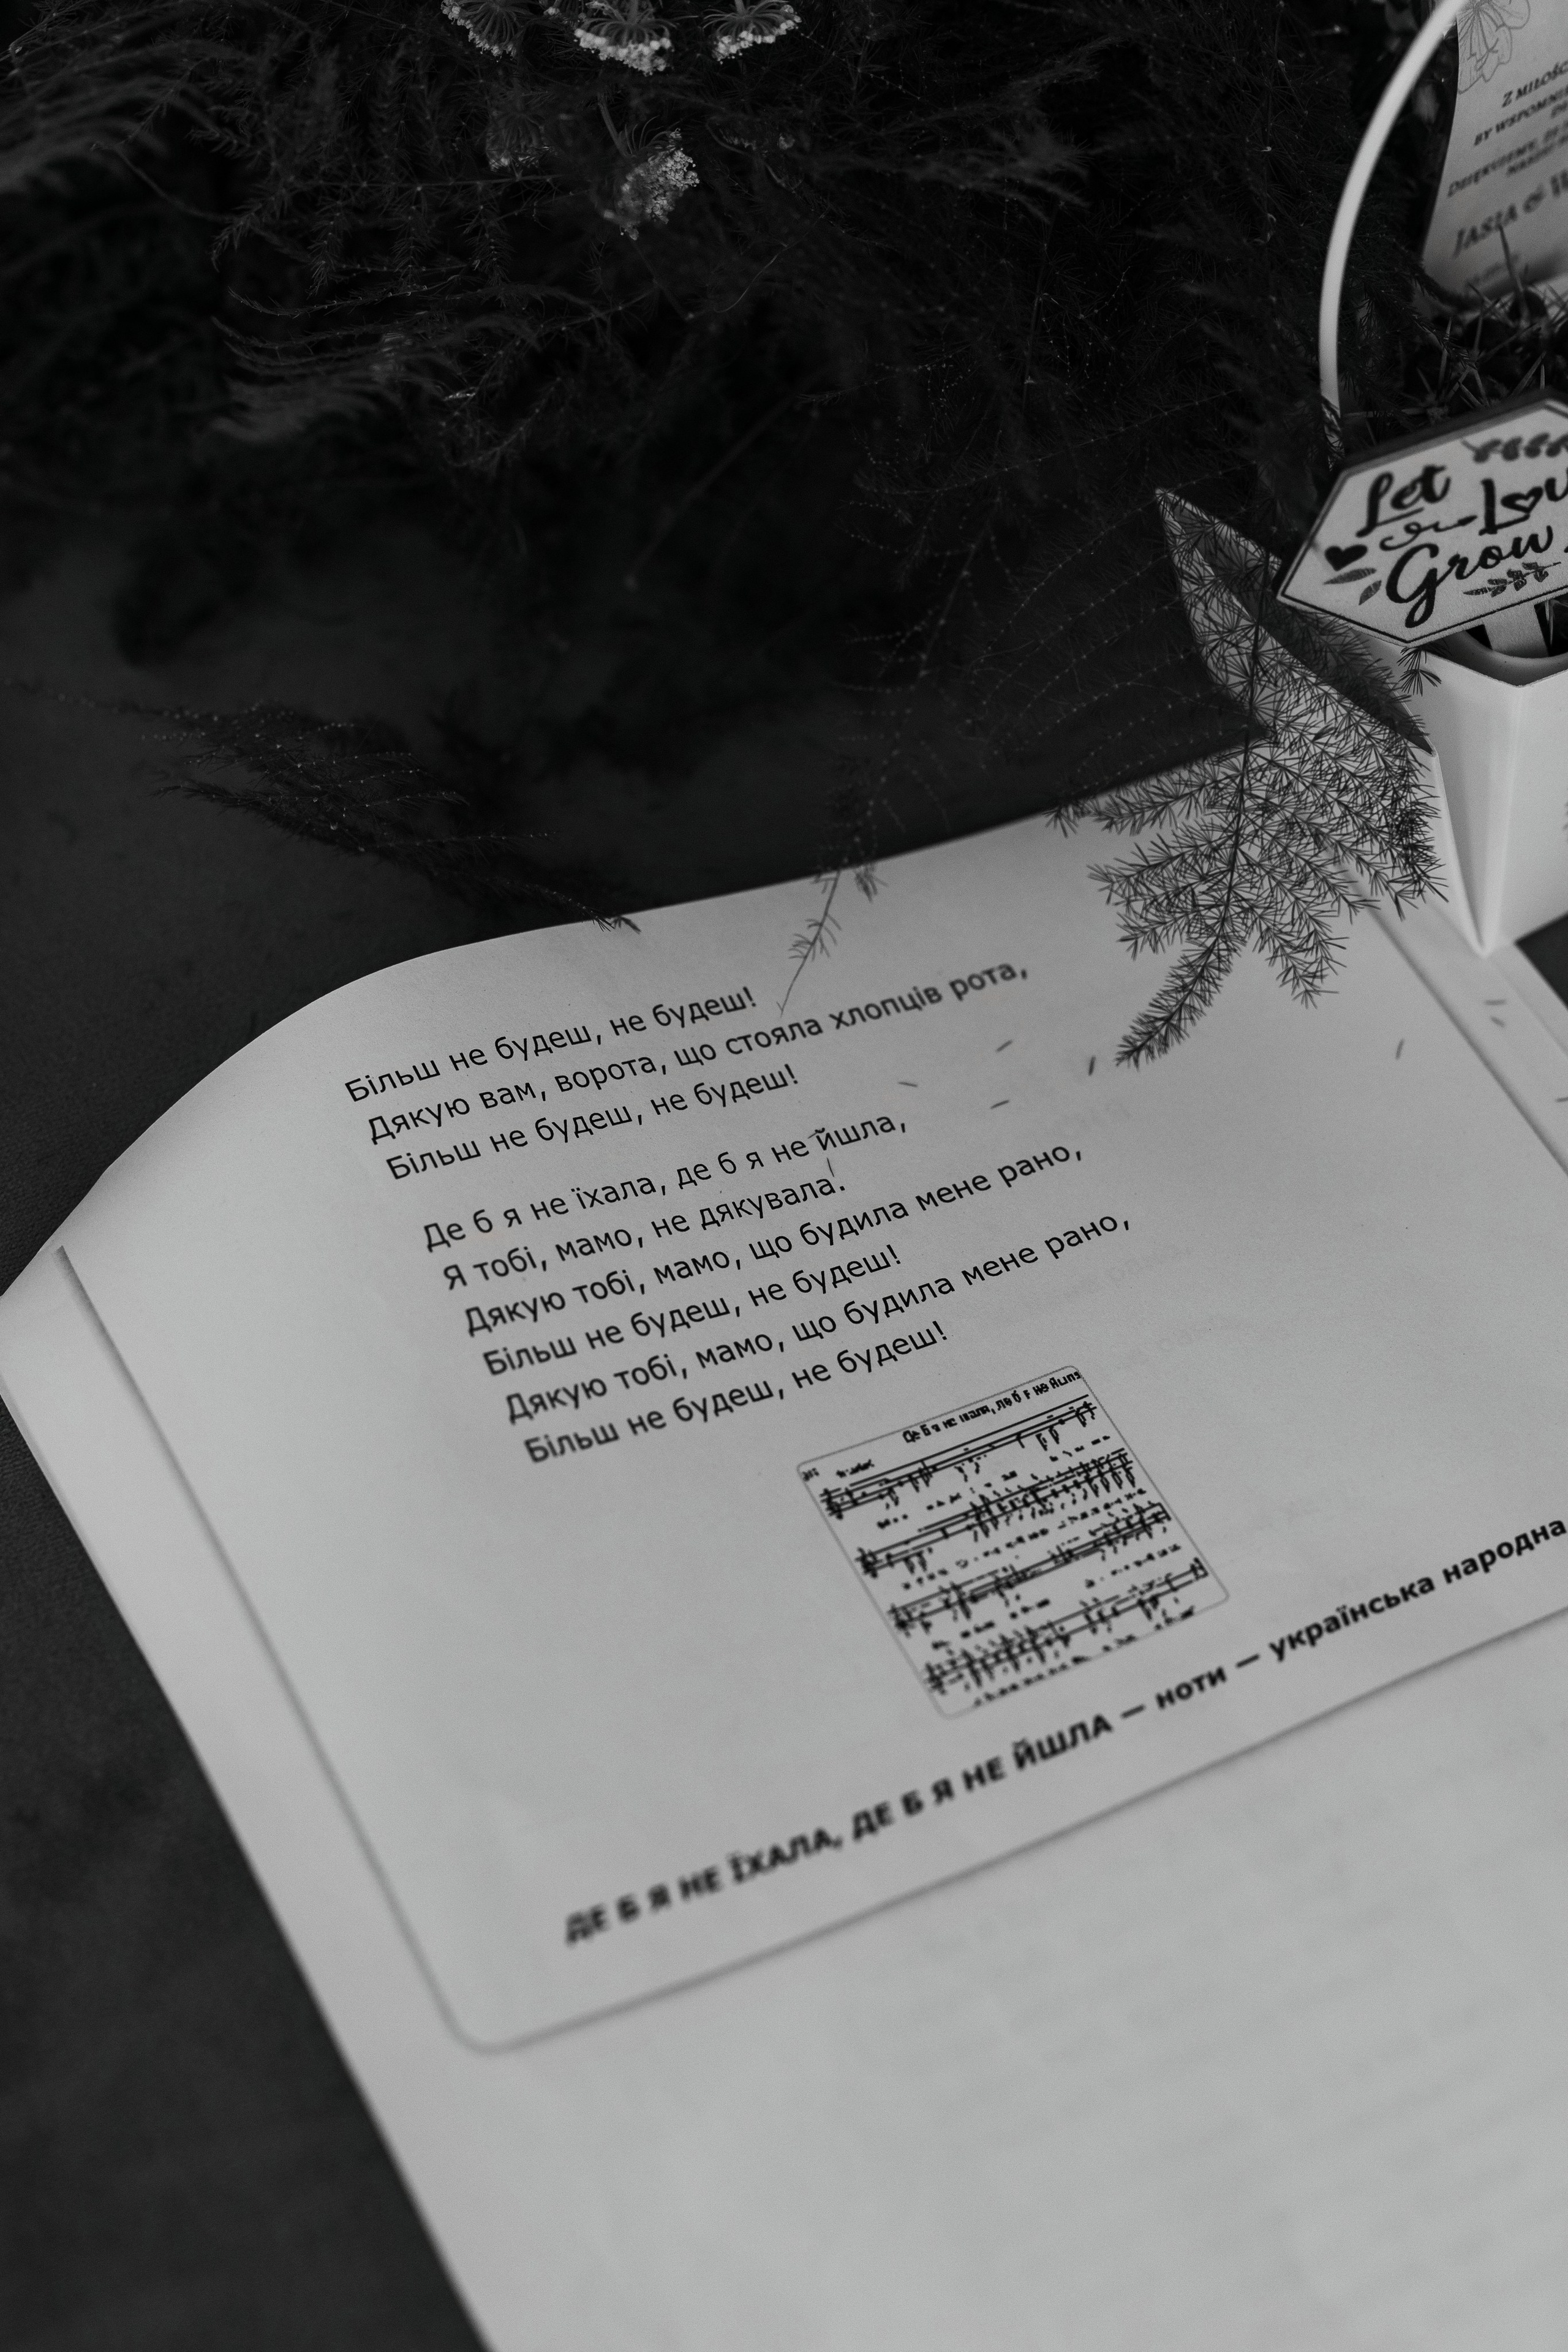 Z MIŁOŚC
BY WSPOMNIE
JASIA &
Let Lov
Grow
Більш не будеш, не будеш!
Дякую вам, ворота, що стояла хлопців рота,
Більш не будеш, не будеш!
Де б я не їхала, де б я не йшла,
Я тобі, мамо, не дякувала.
Дякую тобі, мамо, що будила мене рано,
Більш не будеш, не будеш!
Дякую тобі, мамо, що будила мене рано,
Більш не будеш, не будеш!
Де б я не їхала, де б я не йшла
ДЕ Б Я НЕ ЇХАЛА, ДЕ Б Я НЕ ЙШЛА — ноти — українська народна